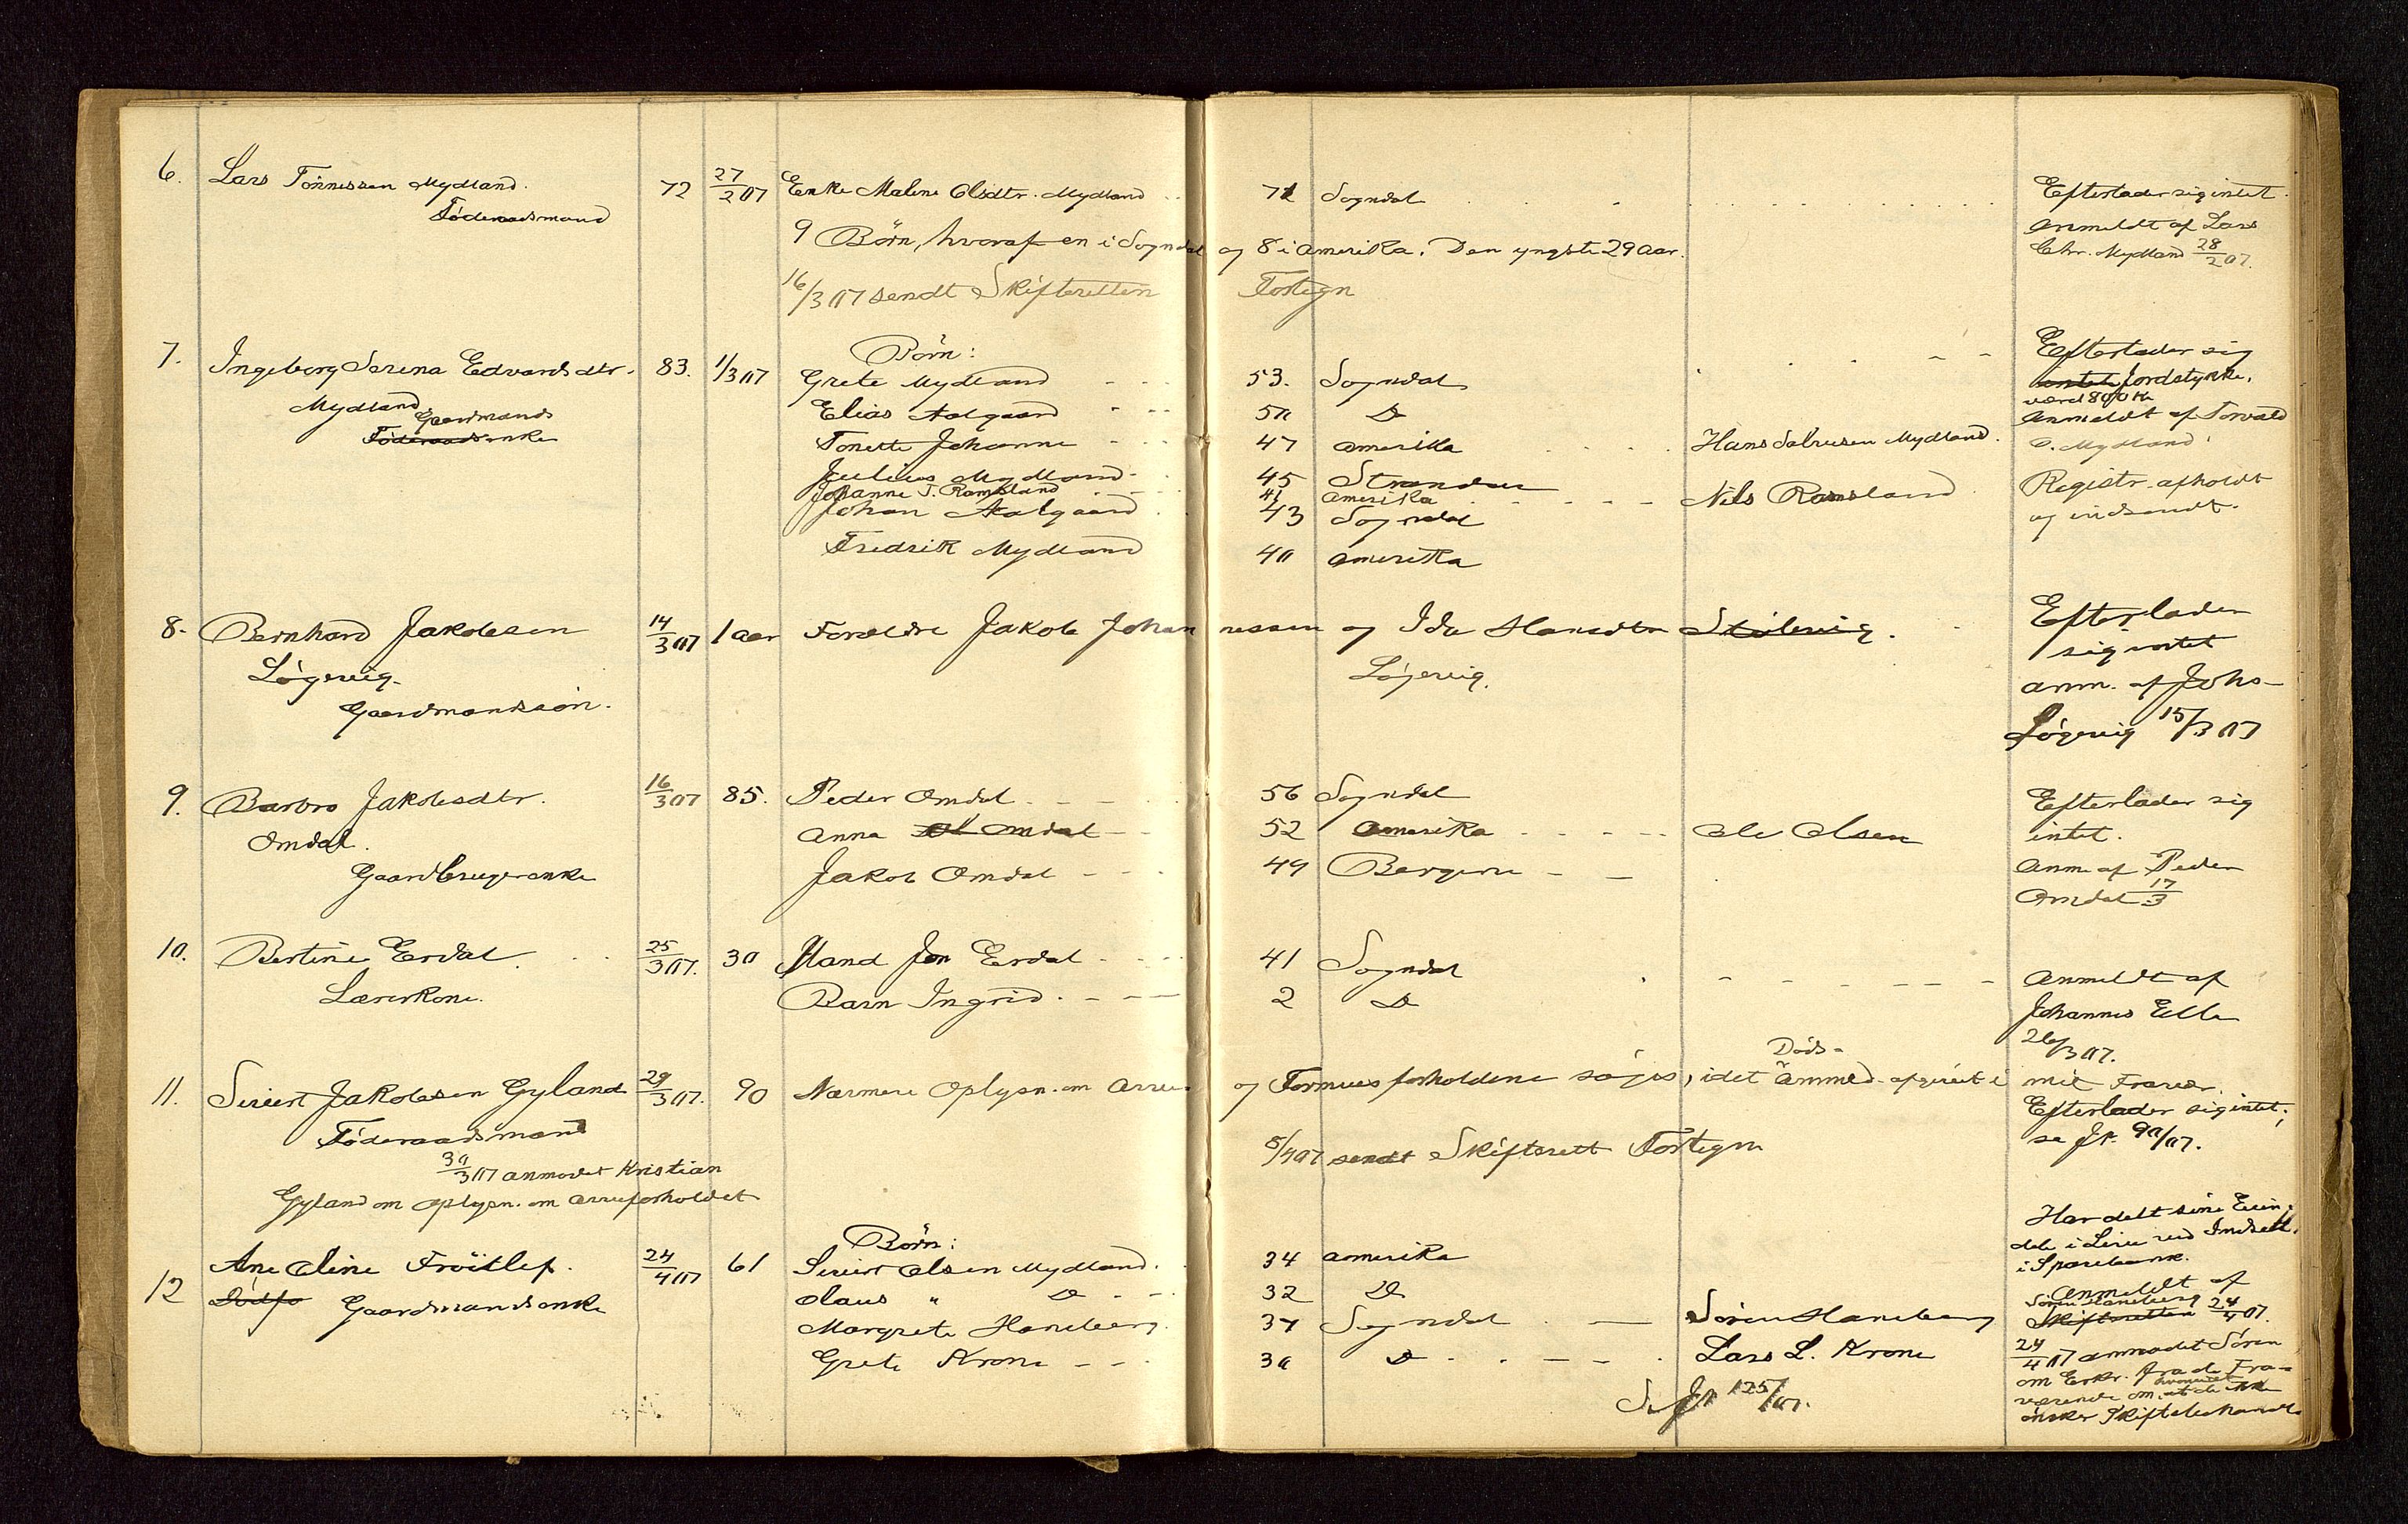 6. Lars Tönnessen Mydland. 72 27/2 07 Enke Malene Olsdtr. Mydland 71 Sogndal Efterlader sig intet.
Föderaadsmand anmeldt af Lars
9 Börn, hvoraf en i Sogndal og 8 i Amerika. Den yngste 29 Aar. Chr. Mydland 28/2 07.
16/3 07 sendt Skifteretten Fortegn
7. Ingeborg Serina Edvardsdtr. 83. 1/3 07 Börn: Efterlader sig
Mydland Grete Mydland 53. Sogndal intet jordstykke,
Gaardmands værd 800 Kr
Föderaadsenke Elias Aalgaard 50 Do Anmeldt af Torvald
Tonette Johanne 47 Amerika Hans Salvesen Mydland. O. Mydland.
Julius Mydland 45 Registr. afholdt
Johanne T. Ramsland 41 Amerika Nils Ramsland og indsendt.
Johan Aalgaard 43 Sogndal
Fredrik Mydland 40 Amerika
8. Bernhard Jakobsen 14/3 07 1 aar Forældre Jakob Johannessen og Ida Hansdtr Efterlader
Lögevig. Lögevig. sig intet
Gaardmandssön. anm. af Johs
Lögevig 15/3 07
9. Barbro Jakobsdtr. 16/3 07 85. Peder Omdal 56 Sogndal Efterlader sig
Omdal. Anna Omdal 52 Amerika Ole Olsen intet.
Gaardbrugerenke Jakob Omdal 49 Bergen Anm af Peder
Omdal 17/3
10. Bertine Eerdal 25/3 07. 30 Mand Jon Eerdal 41 Sogndal Anmeldt af
Lærerkone. Barn Ingrid. 2 Do Johannes
26/3 07.
11. Sivert Jakobsen Gyland 29/3 07. 90 Nærmere Oplysn. om Arve- og Formuesforholdene söges, idet Döds- anmeld. afgivet i mit Fravær.
Föderaadsmand Efterlader sig intet;
30/3 07 anmodet Kristian 5/4 07 sendt Skifterett Fortegn se Jr. 90/07.
Gyland om oplysn. om arveforholdet
12 Ane Oline Fröitlep. 24/4 07 61 Börn: Har delt sine Eien-
dele i Live ved Indsett.
i Sparebank.
Gaardmandsenke Sivert Olsen Mydland. 34 Amerika
Olaus " Do 32 Do Anmeldt af
Margrete Haneberg. 37 Sogndal Sören Haneberg Sören Haneberg
Skifteretten 24/4 07.
Grete Krone 30 Do Lars L. Krone 24/4 07 anmodet Sören
om Erkr. fra de Fra-
Se Jr 125/07. værende om, at de ikke
önsker Skiftebehandl.